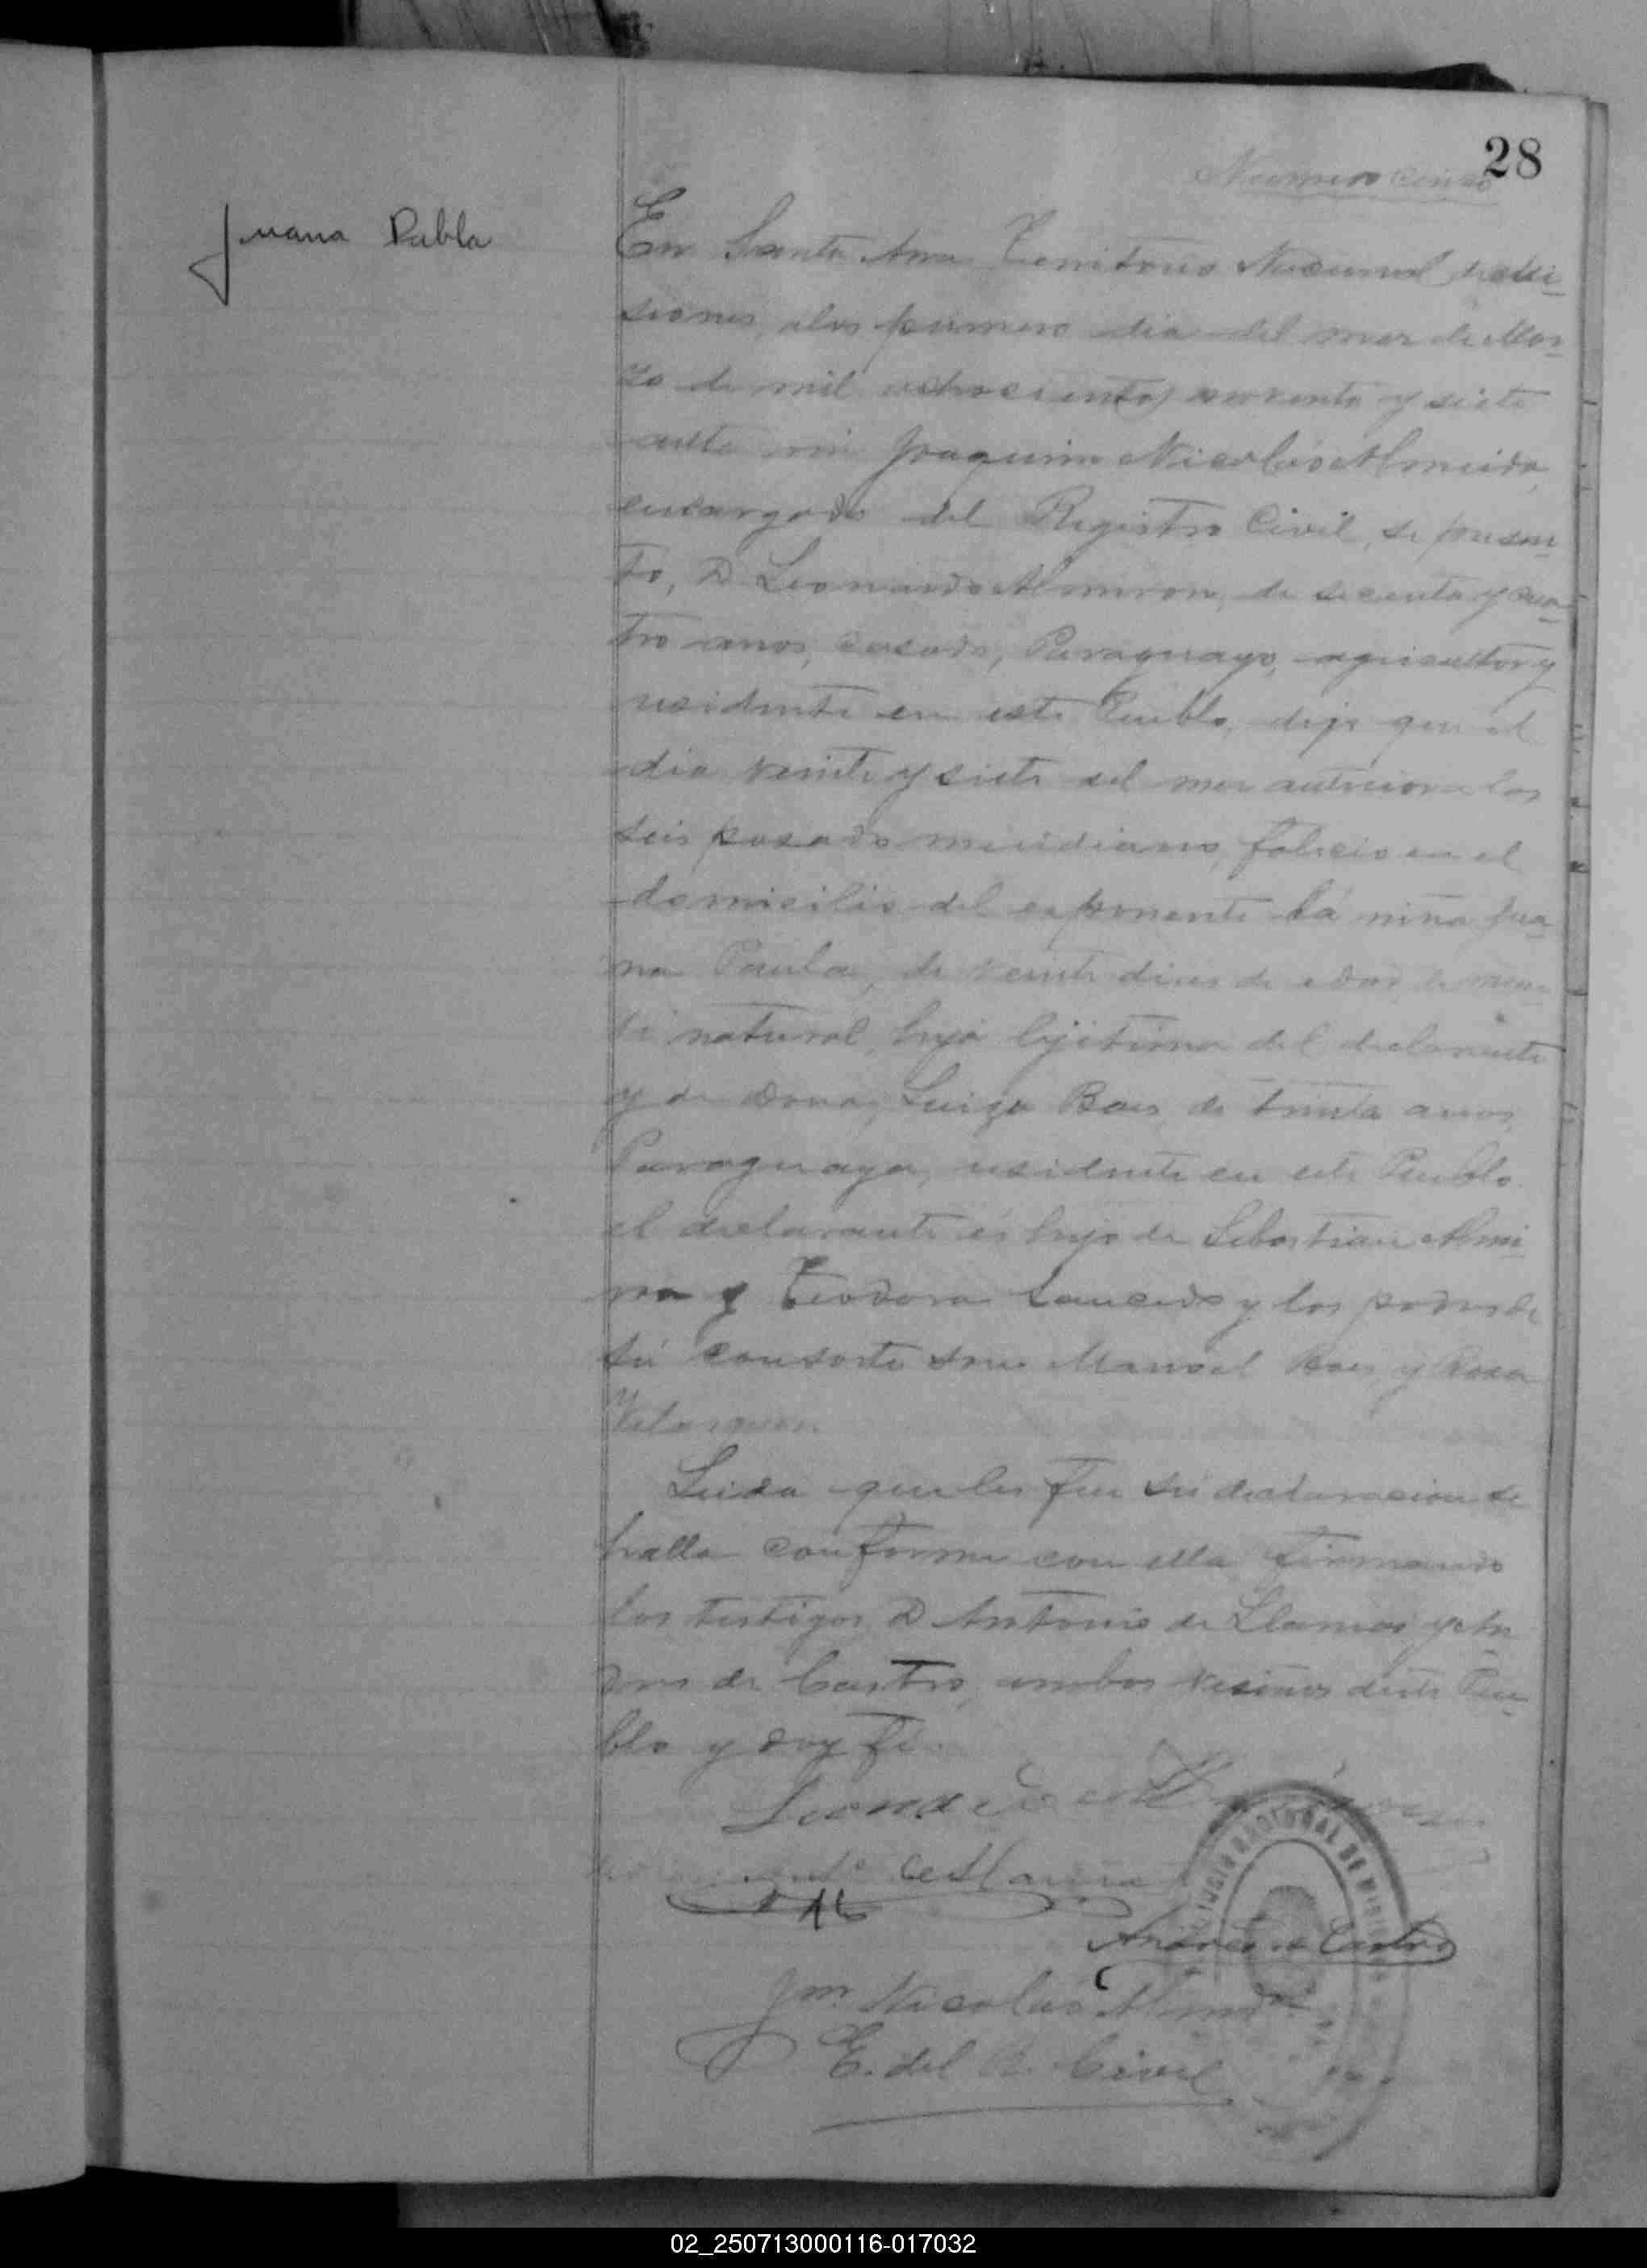 28
Numero cinco
Juana Pabla
En Santa Ana Territorio Nacional de Mi-
siones, a los primero dia del mes de Mar-
zo de mil ochocientos noventa y siete
ante mi Joaquin Nicolás Almeida,
encargado del Registro Civil, se presen-
to, D Leonardo Almiron, de secenta y cua-
tro anos, casado, Paraguayo, agricultor y
residente en este Pueblo, dijo que el
dia veinte y siete del mes anterior a las
seis pasado meridiano, falecio en el
domicilio del exponente la niña Jua-
na Paula, de veinte dias de edad, de
natural, hija lijitima del declarante
y de Dona, Luiza Baes, de trinta anos,
Paraguaya, residente en este Pueblo.
el declarante es hijo de Sebastian Almi-
ron y Teodora Saucedo y los padres de
su consorte son Manoel Baes y Rosa
Velasquez.
Leida que les fue su declaracion se
halla conforme con ella firmando
los testigos D Antonio de Llamas y An-
dres de Castro, ambos vesinos deste Pue-
blo y doy fé.
Leonardo Almiron
Andres de Castro
Jm Nicolás Almda
E. del R. Civil
02_250713000116-017032